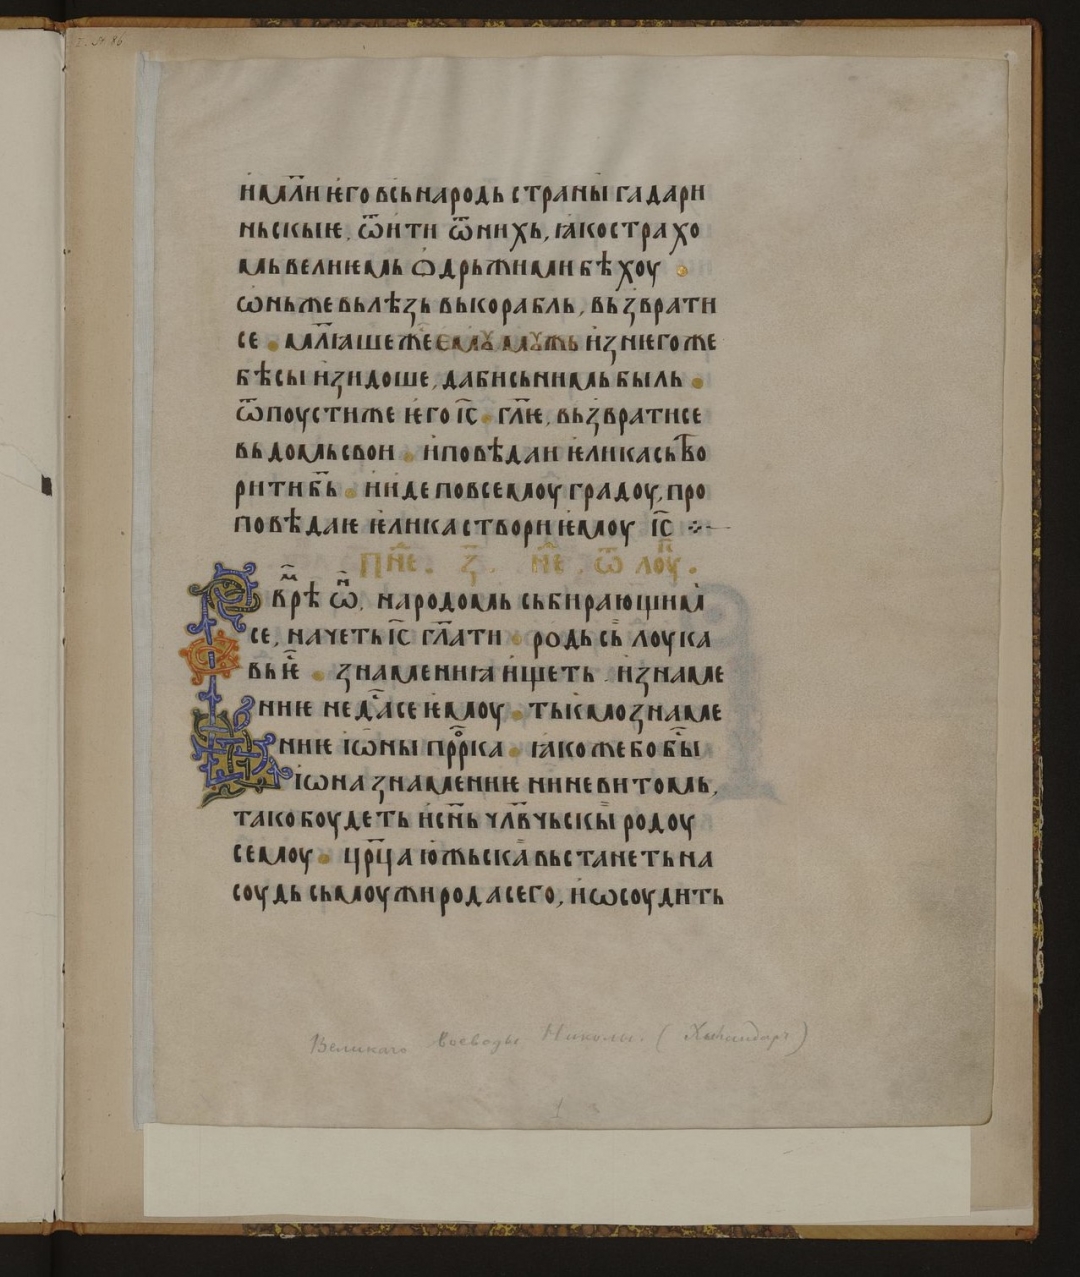 И҆ мл҃и ѥ҆го в҆сь народь страны гадари
ньскыѥ. ѿи҆ти ѿ нихь, ꙗ҆ко страхо
мь велиѥмь ѻ҆дрьжими бѣхоу
ѡ҆нь же вьлѣзь вь корабль, вьзврати
се. мл҃ꙗше же ѥмꙋ мꙋжь и҆з ниѥго же
бѣсы и҆зидоше, да би сь нимь быль.
ѿпоусти же ѥ҆го і҆с҃. гл҃ѥ, вьзврати се
вь домь свои. и҆ повѣдаи ѥ҆лика сьтво
рит ти б҃ь. и҆ иде по всемоу градоу, про
повѣдаѥ ѥ҆лика створи ѥ҆моу і҆с҃
пн҃е. з҃. не҃. ѿ лоу.
Врѣ ѡ҆н, народомь сьбирающим
се, начеть і҆с҃ гл҃ати. родь сь лоука
вь ѥ҆. знамениꙗ и҆щеть. и҆ знаме
ниѥ не дасе ѥ҆моу. тькмо знаме
ниѥ і҆ѡны пррⷪка. ꙗ҆коже бо бы
і҆ѡна знамениѥ ниневитомь,
тако боудеть и҆ сн҃ь чл҃вчьскы родоу
семоу. црⷭца ю҆жьска вьстанеть на
соудь сь моужи рода сего, и҆ ѡ҆соудить
Великаго воеводы Николы. (Хиландар)